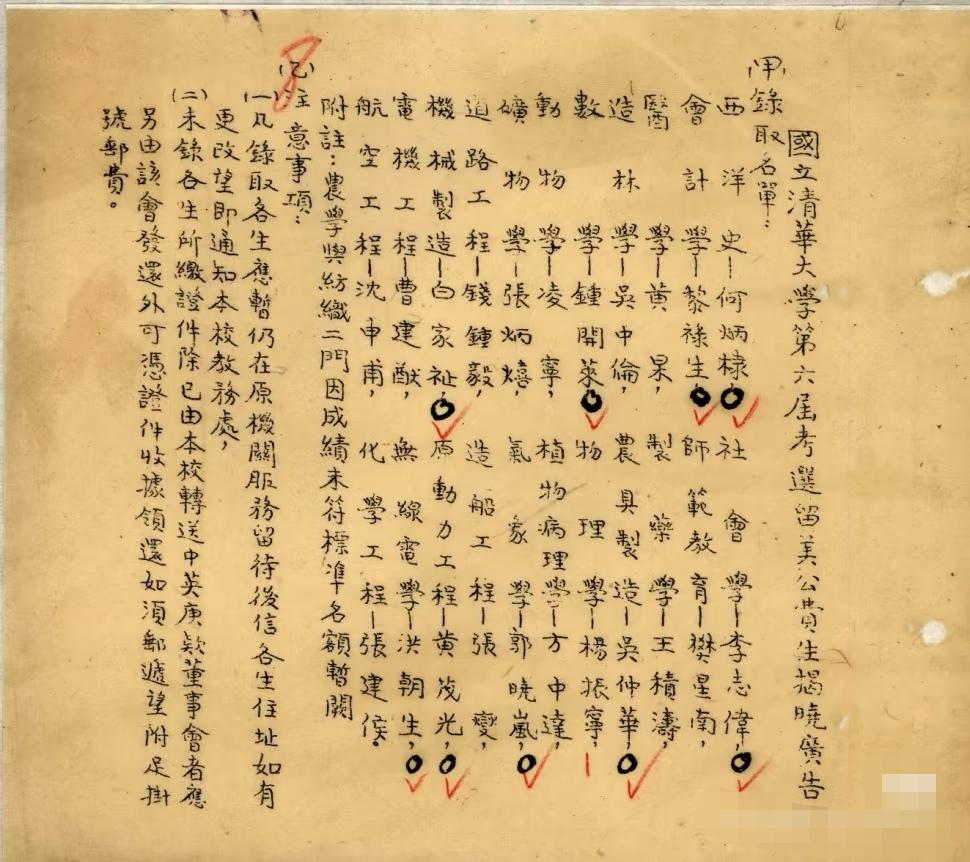 國立清華大學第六屆考選留美公費生揭曉廣告
(甲)錄取名單：
西洋史—何炳棣，社會學—李志偉，
會計學—黎祿生，師範教育—樊星南，
醫學—黄杲，製藥學—王積濤，
造林學—吳中倫，農具製造—吳仲華，
數學—鍾開萊，物理學—楊振寧，
動物學—凌寧，植物病理學—方中達，
礦物學—張炳熺，氣象學—郭曉嵐，
道路工程—錢鍾毅，造船工程—張燮，
機械製造—白家祉，原動力工程—黄茂光，
電機工程—曹建猷，無線電學—洪朝生，
航空工程—沈申甫，化學工程—張建侯。
附註：農學與紡織二門因成績未符標準名額暫闕
(乙)注意事項：
(一)凡錄取各生應暫仍在原機關服務留待後信各生住址如有
更改望即通知本校教務處，
(二)未錄各生所繳證件除已由本校轉送中英庚款董事會者應
另由該會發還外可憑證件收據領還如須郵遞望附足掛
號郵費。